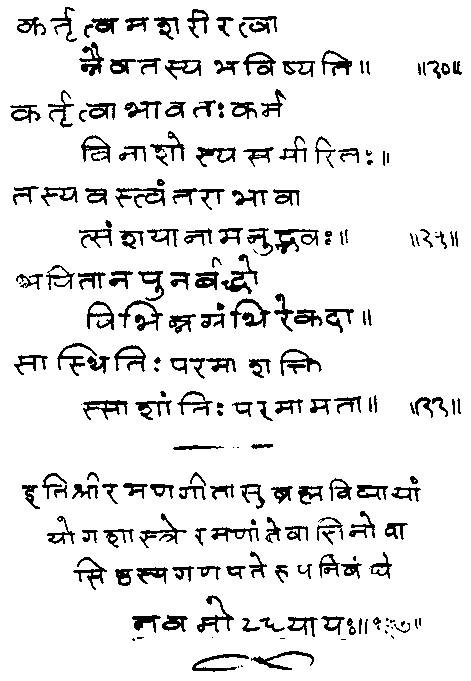 कर्तृत्वमशरीरत्वा
न्नैवतस्यभविष्यति॥ ॥२०॥
कर्तृत्वाभावतःकर्म
विनाशोस्यसमीरितः॥
तस्यवस्त्वंतराभावा
त्संशयानामनुद्भवः॥ ॥२५॥
भवितानपुनर्बद्धो
विभिन्नग्रंथिरेकदा॥
सास्थितिःपरमाशक्ति
स्साशांतिःपरमामता॥
इतिश्रीरमणगीतासुब्रह्मविद्यायां
योगशास्त्रेरमणांतेवासिनोवा
सिष्ठस्यगणपतेरुपनिबंधे
नवमोऽध्यायः॥